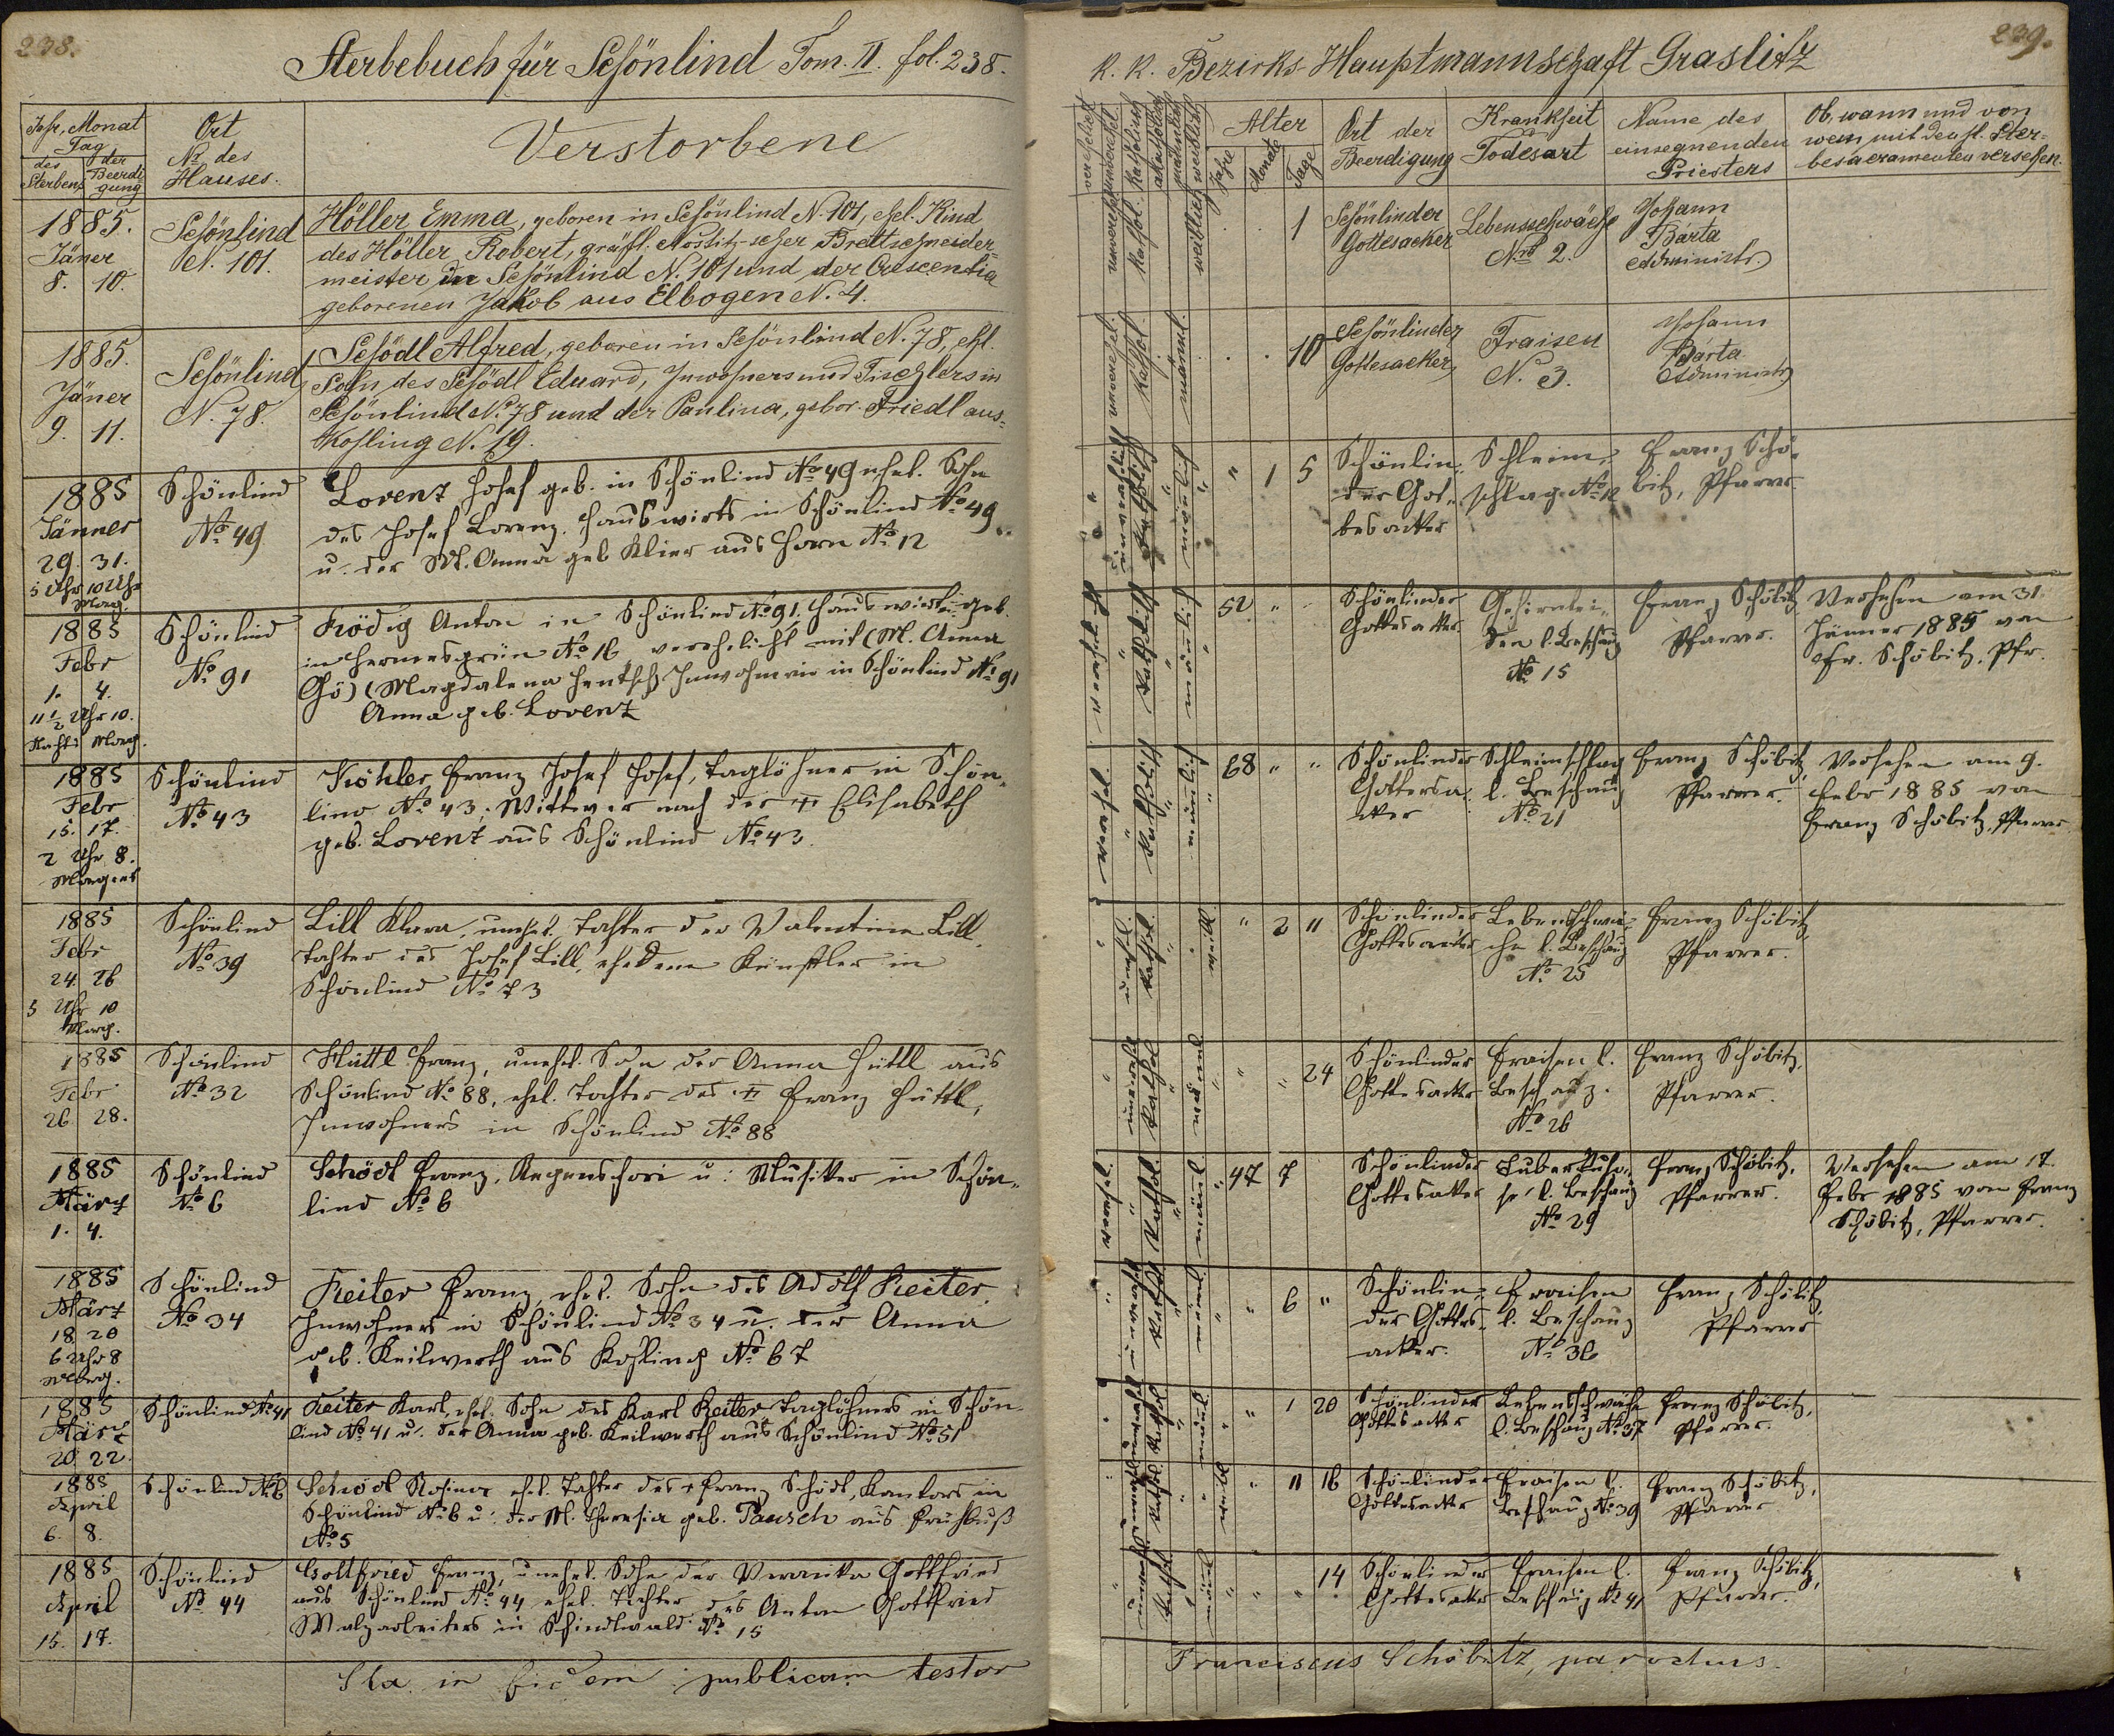 238.
Sterbebuch für Schönlind Tom. II. fol. 238.
Jahr, Monat
Tag
des Sterbens
der Beerdigung
Ort
No. des
Hauses.
Verstorbene
1885.
Jäner
8. 10.
Schönlind
N. 101.
Höller Emma, geboren in Schönlind N. 101, ehel. Kind
des Höller Robert, gräfl. Nostitz-scher Brettschneider-
meister in Schönlind N. 101 und der Crescentia
geborenen Jakob aus Elbogen N. 4.
1885.
Jäner
9. 11.
Schönlind
N. 78.
Schödl Alfred, geboren in Schönlind N. 78, ehl.
Sohn des Schödl Eduard, Inwohners und Tischlers in
Schönlind N. 78 und der Paulina, gebor. Friedl aus
Kohling N. 19.
1885
Jänner
29. 31.
5 Uhr 10 Uhr
Morg.
Schönlind
No 49
Lorenz Josef geb. in Schönlind No 49 ehel. Sohn
des Josef Lorenz, Hauswirts in Schönlind No 49
u. der M. Anna geb Klier aus Horn No 12
1885
Febr
1. 4.
11 1/2 Uhr 10.
Nachts Morg.
Schönlind
No 91
Ködig Anton in Schönlind No 91, Hauswirt geb.
in Hermesgrün No 16 verehelicht mit (M. Anna
Gö) (Magdalena Hentsch Inwohnerin in Schönlind No 91
Anna geb. Lorenz
1885
Febr
15. 17.
2 Uhr 8.
Morgens
Schönlind
No 43
Köhler Franz Josef Josef, Taglöhner in Schön-
lind No 43, Wittwer nach der † Elisabeth
geb. Lorenz aus Schönlind No 43.
1885
Febr
24 26
5 Uhr 10
Morg.
Schönlind
No 39
Lill Klara, unehel. Tochter der Valentina Lill,
Tochter des Josef Lill, Künstler in
Schönlind No 73
1885
Febr
26. 28.
Schönlind
No 32
Hüttl Franz, unehel. Sohn der Anna Hüttl aus
Schönlind No 88, ehel. Tochter des † Franz Hüttl,
Inwohners in Schönlind No 88
1885
März
1. 4.
Schönlind
No 6
Schödl Franz, Regenschori u: Musiker in Schön-
lind No 6
1885
März
18 20
6 Uhr 8
Morg.
Schönlind
No 34
Reiter Franz, ehel. Sohn des Adolf Reiter,
Inwohners in Schönlind No 34 u. der Anna
geb. Keilwerth aus Kohling No 67
1885
März
20 22.
Schönlind No 41
Reiter Karl, ehel. Sohn des Karl Reiter Taglöhners in Schön-
lind No 41 u. der Anna geb. Keilwerth aus Schönlind No 51
1885
April
6. 8.
Schönlind No 6
Schödl Rosina ehel. Tochter des † Franz Schödl, Kantors in
Schönlind No 6 u: der M. Theresia geb. Pausch aus Frühbuß
No 5
1885
April
15. 17.
Schönlind
No 44
Gottfried Franz, unehel. Sohn der Veronika Gottfried
aus Schönlind No 44 ehel. Tochter des Anton Gottfried
Malzarbeiters in Schindlwald No 15
Ita in fidem publicam testor
239.
K. K. Bezirks-Hauptmannschaft Graslitz
verehelicht
unverehel.
katholisch
akatholisch
männlich
weiblich
Alter
Jahre
Monate
Tage
Ort der
Beerdigung
Krankheit
Todesart
Name des
einsegnenden
Priesters
Ob, wann und von
wem mit den hl. Ster-
besacramenten versehen.
unverehel. kathol. weiblich
1
Schönlinder
Gottesacker
Lebensschwäche
Nro 2.
Johann
Bárta
Administr.
unverehel. kathol. männl.
10
Schönlinder
Gottesacker
Fraisen
N. 3.
Johann
Bárta
Administr.
" 1 5
Schönlin-
der Got-
tesacker
Schleim-
schlag No 12
Franz Schö-
bitz, Pfarrer
52 " "
Schönlinder
Gottesacker
Gehirnlei-
den l. Beschau
No 15
Franz Schöbitz
Pfarrer.
Versehen am 31.
Jänner 1885 von
Fr. Schöbitz, Pfr.
68 " "
Schönlinder
Gottesa-
cker
Schleimschlag
l. Beschau
No 21
Franz Schöbitz
Pfarrer.
Versehen am 9.
Febr 1885 von
Franz Schöbitz, Pfarrer
" 2 "
Schönlinder
Gottesacker
Lebensschwä-
che l. Beschau
No 25
Franz Schöbitz,
Pfarrer.
" " 24
Schönlinder
Gottesacker
Fraisen l.
Beschau z.
No 26
Franz Schöbitz,
Pfarrer.
47 7
Schönlinder
Gottesacker
Tuberkulo-
se l. Beschau
No 29
Franz Schöbitz,
Pfarrer.
Versehen am 17.
Febr 1885 von Franz
Schöbitz, Pfarrer.
" 6 "
Schönlin-
der Gottes-
acker.
Fraisen
l. Beschau
No 36
Franz Schöbitz,
Pfarrer
" 1 20
Schönlinder
Gottesacker
Lebensschwäche
l. Beschau No 37
Franz Schöbitz,
Pfarrer.
" 11 16
Schönlinder
Gottesacker
Fraisen l.
Beschau No 39
Franz Schöbitz,
Pfarrer
" " 14
Schönlinder
Gottesacker
Fraisen l.
Beschau No 41
Franz Schöbitz,
Pfarrer.
Franciscus Schöbitz, parochus.